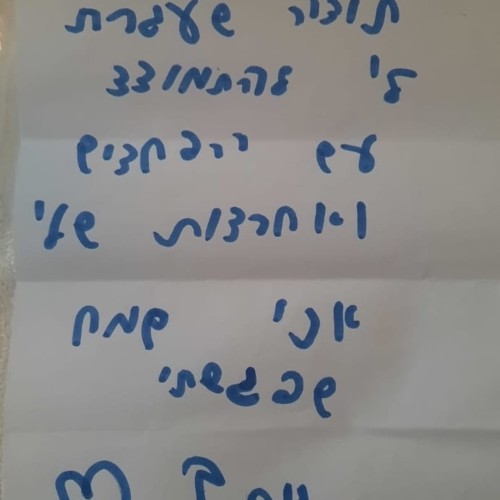 תודה שעזרת
לי להתמודד
עם הפחדים
ואחרדות שלי
אני שמח
שפגשתי